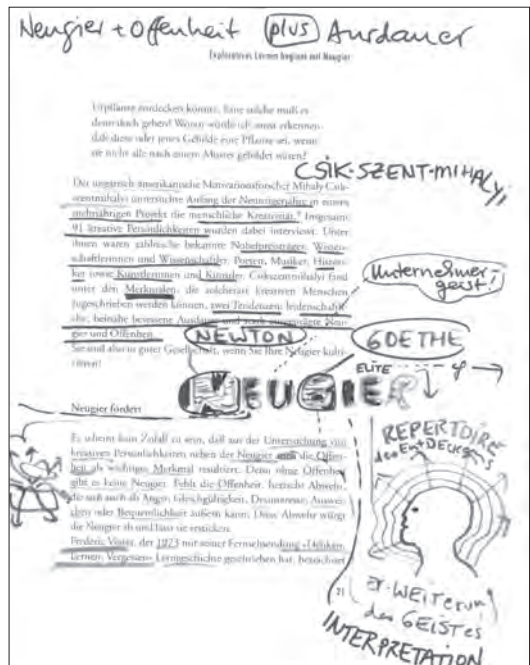 Neugier + Offenheit plus Ausdauer
Exploratives Lernen beginnt mit Neugier
Urpflanze entdecken könnte. Eine solche muß es
denn doch geben! Woran würde ich sonst erkennen,
daß dieses oder jenes Gebilde eine Pflanze sei, wenn
sie nicht alle nach einem Muster gebildet wären?
CSIK-SZENT-MIHALYI
Der ungarisch amerikanische Motivationsforscher Mihaly Csik-
szentmihalyi untersuchte Anfang der Neunzigerjahre in einem
mehrjährigen Projekt die menschliche Kreativität. Insgesamt
91 kreative Persönlichkeiten wurden dabei interviewt. Unter
ihnen waren zahlreiche bekannte Nobelpreisträger, Wissen-
schaftlerinnen und Wissenschaftler, Poeten, Musiker, Histori-
ker sowie Künstlerinnen und Künstler. Csikszentmihalyi fand
unter den Merkmalen, die solcherart kreativen Menschen
zugeschrieben werden können, zwei Tendenzen: leidenschaft-
liche, beinahe besessene Ausdauer und stark ausgeprägte Neu-
gier und Offenheit.
Sie sind also in guter Gesellschaft, wenn Sie Ihre Neugier kulti-
vieren!
Unternehmer-
geist!
NEWTON
GOETHE
NEUGIER
ELITE
Neugier fördert
Es scheint kein Zufall zu sein, daß aus der Untersuchung von
kreativen Persönlichkeiten neben der Neugier auch die Offen-
heit als wichtiges Merkmal resultiert. Denn ohne Offenheit
gibt es keine Neugier. Fehlt die Offenheit, herrscht Abwehr,
die sich auch als Angst, Gleichgültigkeit, Desinteresse, Auswei-
chen oder Bequemlichkeit äußern kann. Diese Abwehr würgt
die Neugier ab und lässt sie ersticken.
Frederic Vester, der 1973 mit seiner Fernsehsendung «Denken,
Lernen, Vergessen» Lerngeschichte geschrieben hat, bezeichnet
REPERTOIRE
des ENTDECKENS
21
Er-WEITERUNG
des GEISTES
INTERPRETATION